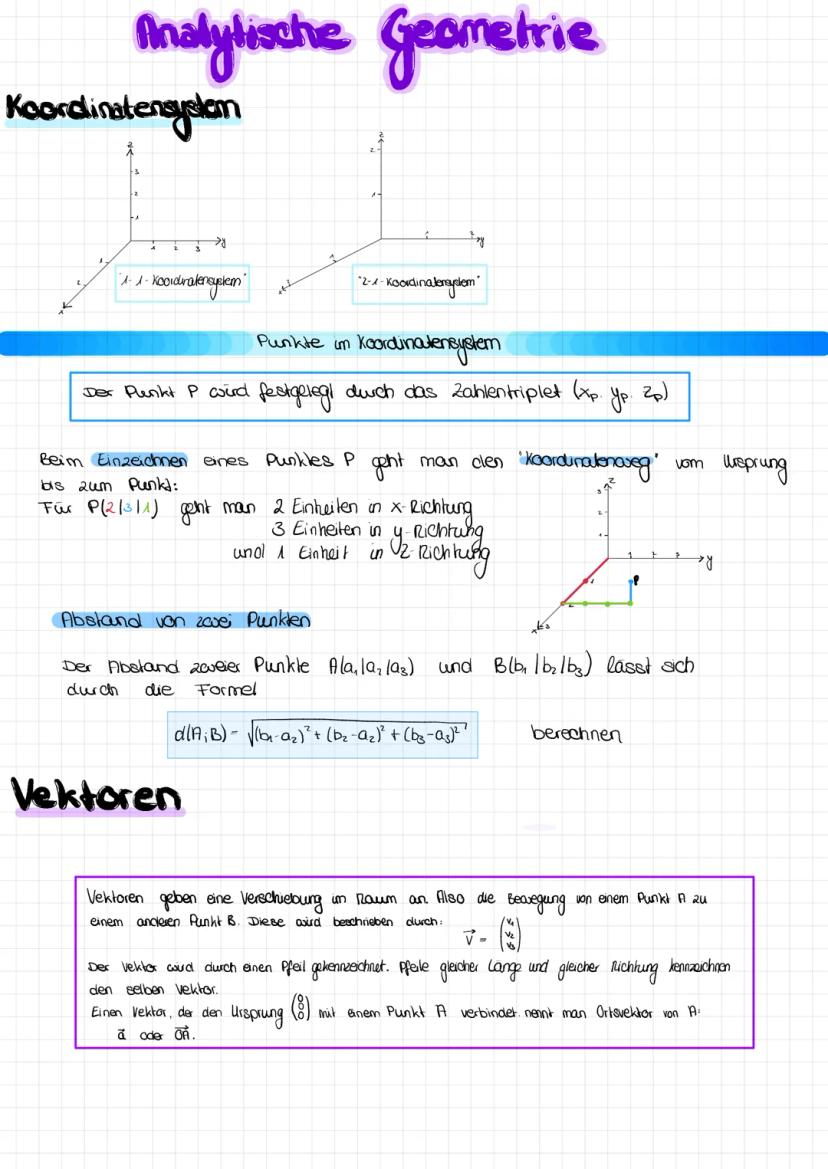 Analytische Geometrie
Koordinatensystem
z
3
2
1
1 2 3 y
1
2
x
"1-1-Koordinatensystem"
z
2
1
1 2 y
1
2
x
"2-1-Koordinatensystem"
Punkte im Koordinatensystem
Der Punkt P wird festgelegt durch das Zahlentriplet (xₚ, yₚ, zₚ)
Beim Einzeichnen eines Punktes P geht man den "Koordinatenweg" vom Ursprung
bis zum Punkt:
Für P(2|3|1) geht man 2 Einheiten in x-Richtung
3 Einheiten in y-Richtung
und 1 Einheit in z-Richtung
z
3
2
1
1 2 3 y
1
P
2
x 3
Abstand von zwei Punkten
Der Abstand zweier Punkte A(a₁|a₂|a₃) und B(b₁|b₂|b₃) lässt sich
durch die Formel
d(A;B) = √((b₁-a₂)² + (b₂-a₂)² + (b₃-a₃)²) berechnen
Vektoren
Vektoren geben eine Verschiebung im Raum an. Also die Bewegung von einem Punkt A zu
einem anderen Punkt B. Diese wird beschrieben durch:
v⃗ = (v₁ v₂ v₃)
Der Vektor wird durch einen Pfeil gekennzeichnet. Pfeile gleicher Länge und gleicher Richtung kennzeichnen
den selben Vektor.
Einen Vektor, der den Ursprung (0 0 0) mit einem Punkt A verbindet, nennt man Ortsvektor von A:
a⃗ oder OA⃗.